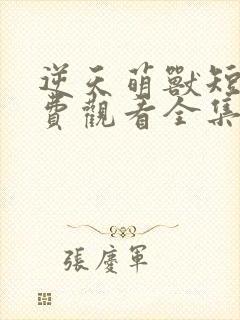 逆天萌獸短
費觀看全集
張慶軍